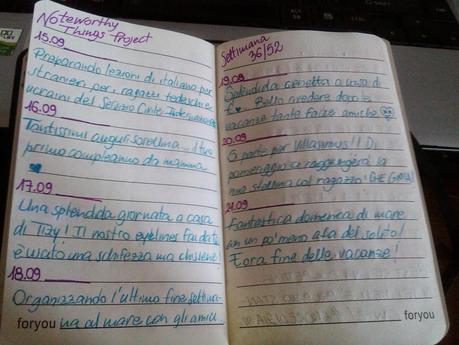 Noteworthy
Things Project
15.09
Preparando lezioni di italiano per
stranieri per ragazzi tedeschi e
ucraini del Servizio Civile
16.09
Tantissimi auguri sorellina... il tuo
primo compleanno da mamma
17.09
Una splendida giornata a casa
di Tizy! Il nostro eyelines fai da te
è uscito una schifezza ma chissene!
18.09
Organizzando l'ultimo fine settima-
na al mare con gli amici
foryou
Settimana
36/52
19.09
Splendida cenetta a casa di
Bello rivedere dopo le
vacanze tante facce amiche
20.09
Si parte per Ullasmus!! Di
pomeriggio ci raggiungerà la
mia stellina col ragazzo! CHE GIOIA!
21.09
Fantastica domenica di mare
con un po' meno alla del solito!
E ora fine delle vacanze!
foryou